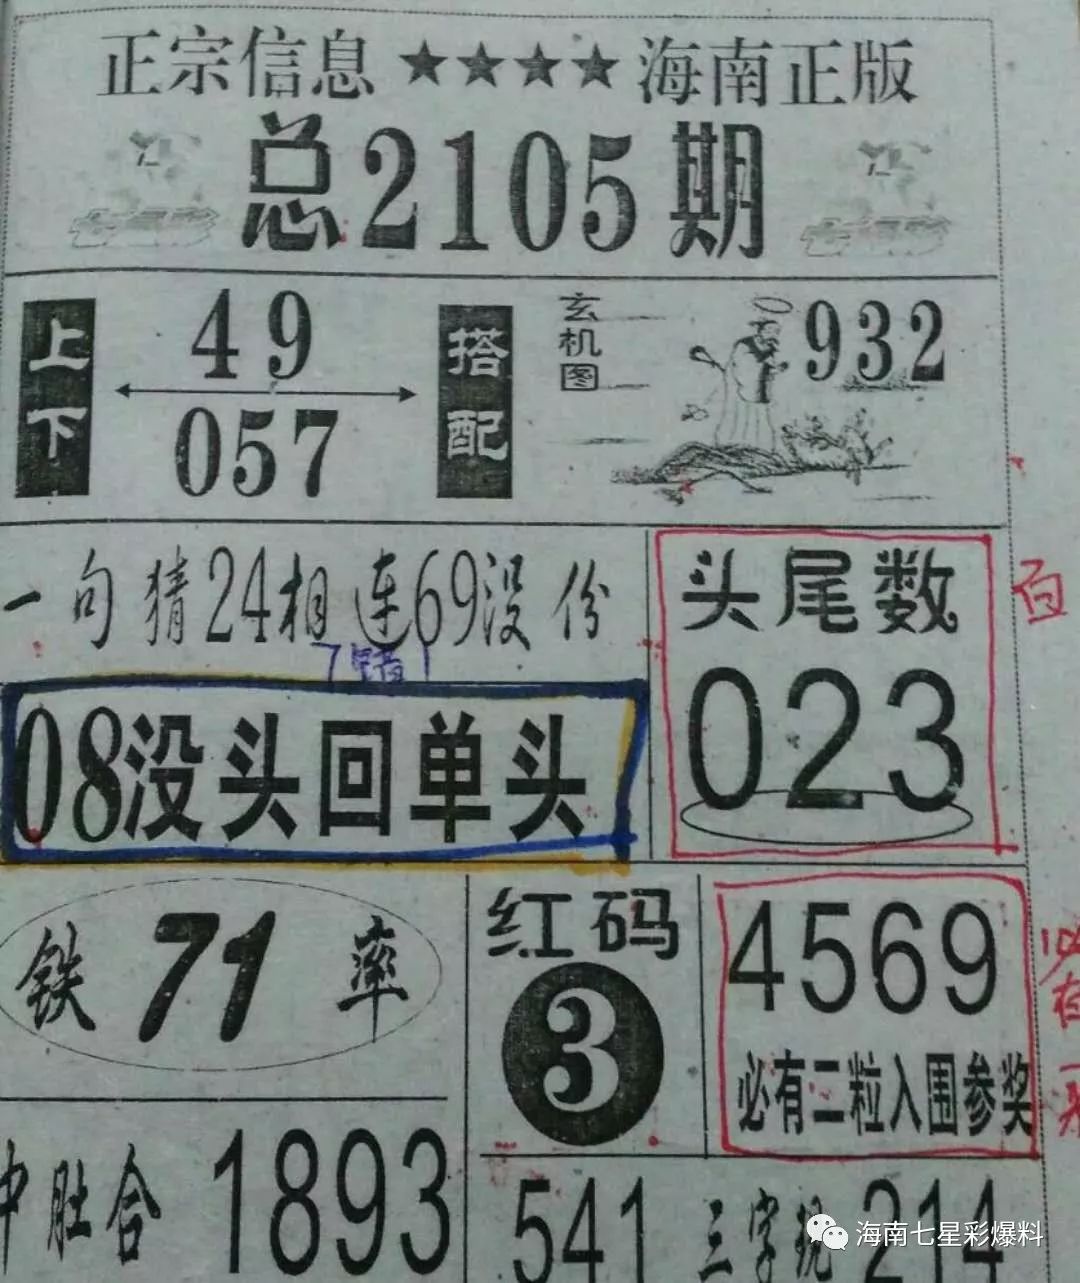 正宗信息★★★★海南正版
总2105期
上下
49
057
搭配
玄机图
932
一句猜24相连69没份
头尾数
023
百
08没头回单头
铁71率
红码
3
4569
必有二粒入围参奖
必在一
中肚合1893
541
三字现214
海南七星彩爆料